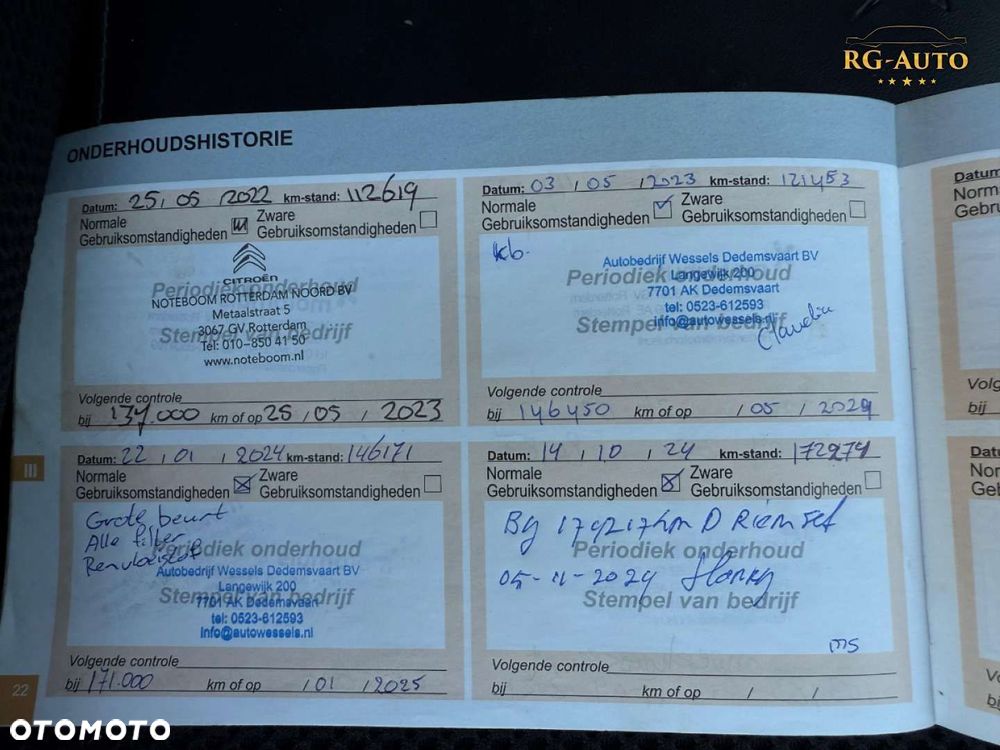 RG-AUTO
ONDERHOUDSHISTORIE
Datum: 25 / 05 / 2022 km-stand: 112619
Normale
Gebruiksomstandigheden
Zware
Gebruiksomstandigheden
CITROËN
Periodiek onderhoud
NOTEBOOM ROTTERDAM NOORD BV
Metaalstraat 5
3067 GV Rotterdam
Stempel van bedrijf
Tel: 010-850 41 50
www.noteboom.nl
Volgende controle
bij 137.000 km of op 25 / 05 / 2023
Datum: 03 / 05 / 2023 km-stand: 121453
Normale
Gebruiksomstandigheden
Zware
Gebruiksomstandigheden
kb.
Autobedrijf Wessels Dedemsvaart BV
Periodiek onderhoud
Langewijk 200
7701 AK Dedemsvaart
tel: 0523-612593
Stempel van bedrijf
info@autowessels.nl
Claudia
Volgende controle
bij 146450 km of op / 05 / 2024
Datum: 22 / 01 / 2024 km-stand: 146171
Normale
Gebruiksomstandigheden
Zware
Gebruiksomstandigheden
Grote beurt
Alle filter
Remvloeistof
Periodiek onderhoud
Autobedrijf Wessels Dedemsvaart BV
Langewijk 200
Stempel van bedrijf
7701 AK Dedemsvaart
tel: 0523-612593
info@autowessels.nl
Volgende controle
bij 171.000 km of op / 01 / 2025
Datum: 14 / 10 / 24 km-stand: 172974
Normale
Gebruiksomstandigheden
Zware
Gebruiksomstandigheden
By D Riem set
Periodiek onderhoud
05-11-2024
Stempel van bedrijf
ms
Volgende controle
bij km of op / /
III
22
Datum
Norm
Gebru
Volg
bij
OTOMOTO